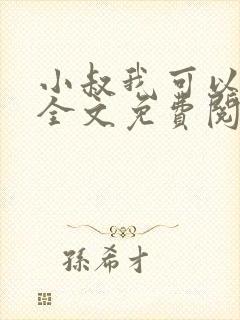 小叔我可以
全文免費閱
孫希才